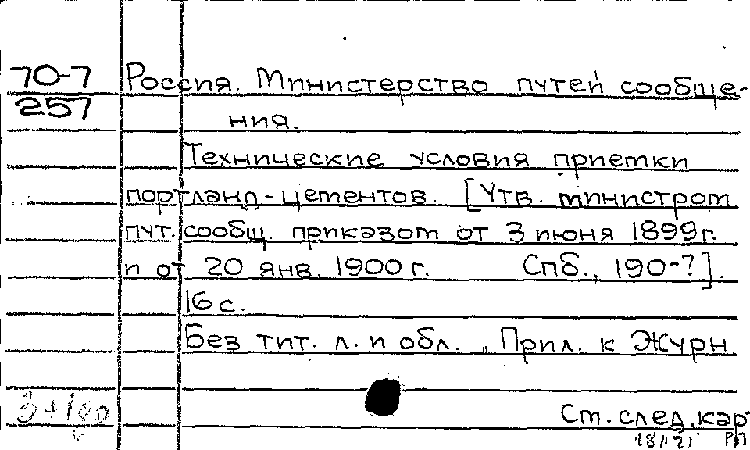 70-7
257
Россия. Министерство путей сообще-
ния.
Технические условия приемки
портланд-цементов. [Утв. министром
пут. сообщ. приказом от 3 июня 1899г.
и от 20 янв. 1900г. Спб., 190-?].
16 с.
Без тит. л. и обл. Прил. к Журн
См. след. кар